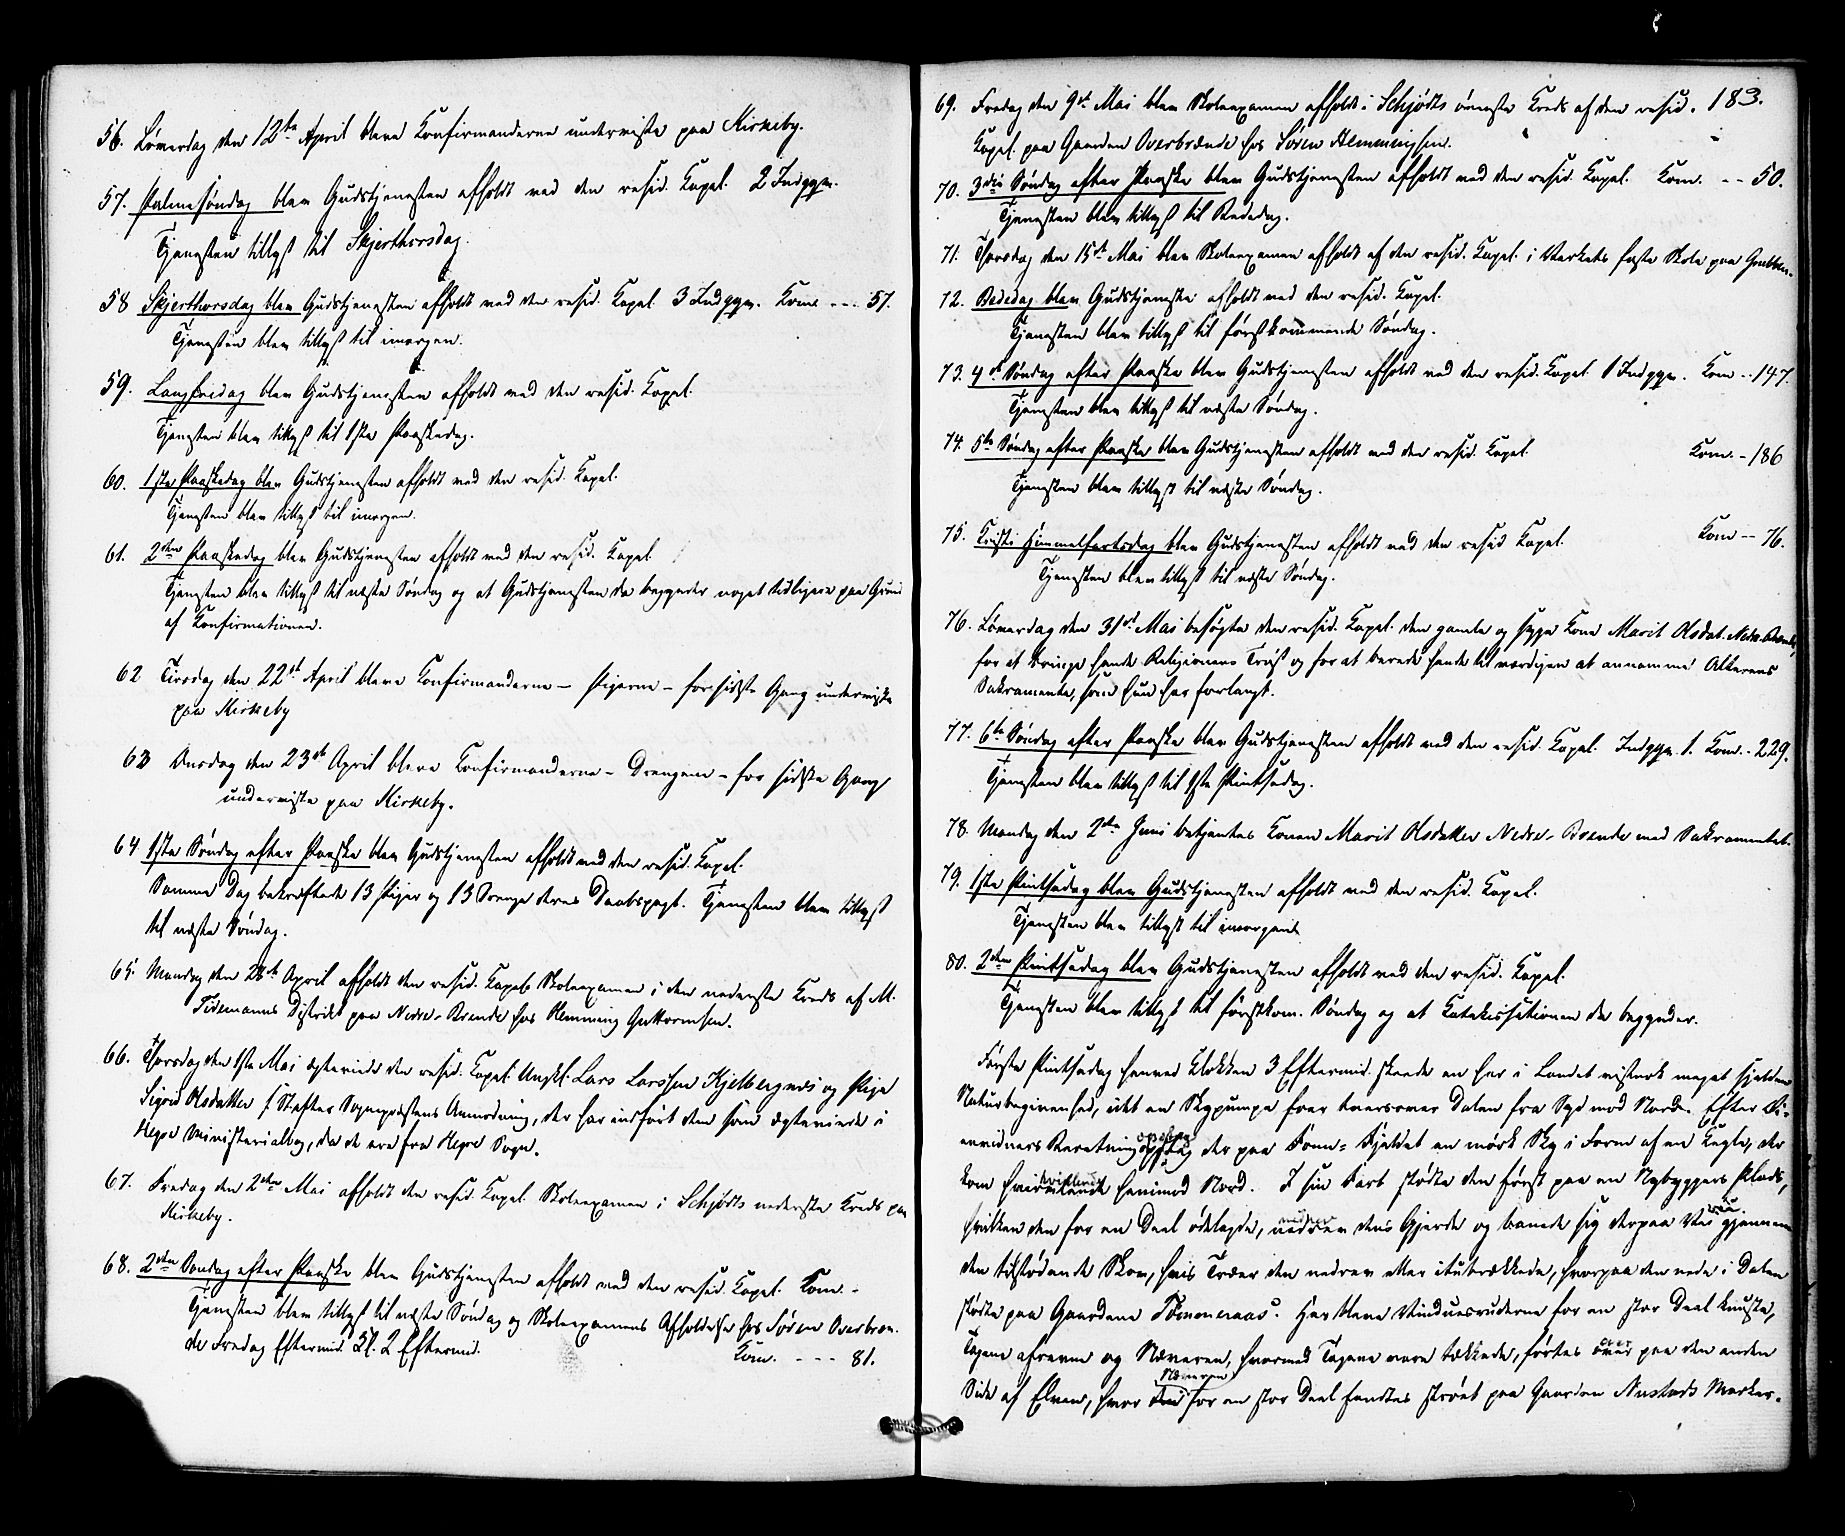 56. Løverdag den 12te April bleve Konfirmanderne underviste paa Kirkeby.
57. Palmesøndag blev Gudstjenesten afholdt ved den resid. Kapel. 2 Indggn.
Tjenesten tillyst til Skjerthorsdag.
58 Skjerthorsdag blev Gudstjenesten afholdt ved den resid. Kapel 3 Indggn. Kom. --- 57.
Tjenesten blev tillyst til imorgen.
59. Langfredag blev Gudstjenesten afholdt ved den resid. Kapel.
Tjenesten blev tillyst til 1ste Paaskedag.
60. 1ste Paaskedag blev Gudstjenesten afholdt ved den resid. Kapel.
Tjenesten blev tillyst til imorgen.
61. 2den Paaskedag blev Gudstjenesten afholdt ved den resid. Kapel
Tjenesten blev tillyst til næste Søndag og at Gudstjenesten da begynder noget tidligere paa Grund
af Konfirmationen.
62 Tirsdag den 22de April bleve Konfirmanderne – Pigerne – for sidste Gang underviste
paa Kirkeby
63 Onsdag den 23de April bleve Konfirmanderne – Drengene – for sidste Gang
underviste paa Kirkeby.
64 1ste Søndag efter Paaske blev Gudstjenesten afholdt ved den resid. Kapel.
Samme Dag bekræftede 13 Piger og 13 Drenge deres Daabspagt. Tjenesten blev tillyst
til næste Søndag.
65. Mandag den 28de April afholdt den resid. Kapel. Skoleexamen i den nederste Kreds af M.
Tidemanns Distrikt paa Nedre-Brende hos Hemming Guttormsen.
66. Thorsdag den 1ste Mai ægteviede den resid. Kapel. Ungkl. Lars Larssen Kjelbergnæs og Pige
Sigrid Olsdatter Stefter Sognepræstens Anmodning, der har indført dem som ægteviede i
Hegre Ministerialbog, da de ere fra Hegre Sogn.
67. Fredag den 2den Mai afholdt den resid. Kapel Skoleexamen i Schjødts nederste Kreds paa
Kirkeby.
68. 2den Søndag efter Paaske blev Gudstjenesten afholdt ved den resid. Kapel. Kom. -
Tjenesten blev tillyst til næste Søndag og Skoleexamens Afholdelse hos Søren Overbræn-
de Fredag Eftermid. Kl. 2 Eftermid.
Kom. - - - 81.
183.
69. Fredag den 9de Mai blev Skoleexamen afholdt i Schjødts øverste Kreds af den resid.
Kapel. paa Gaarden Overbrænde hos Søren Hemmingsen.
70. 3die Søndag efter Paaske blev Gudstjenesten afholdt ved den resid. Kapel. Kom. -- 50.
Tjenesten blev tillyst til Bededag.
71. Thorsdag den 15de Mai blev Skoleexamen afholdt af den resid. Kapel. i Værkets faste Skole paa
72. Bededag blev Gudstjeneste afholdt ved den resid. Kapel.
Tjenesten blev tillyst til førstkommende Søndag.
73. 4de Søndag efter Paaske blev Gudstjenesten afholdt ved den resid. Kapel 1 Indggn. Kom -- 147.
Tjenesten blev tillyst til næste Søndag.
74. 5te Søndag efter Paaske blev Gudstjenesten afholdt ved den resid. Kapel. Kom. - 186
Tjenesten blev tillyst til næste Søndag.
75. Kristi Himmelfartsdag blev Gudstjenesten afholdt ved den resid Kapel. Kom -- 76.
Tjenesten blev tillyst til næste Søndag.
76. Løverdag den 31te Mai besøgte den resid. Kapel. den gamle og syge Kone Marit Olsdat. Nedre-Brende,
for at bringe hende Religionens Trøst og for at berede hende til værdigen at annamme Alterens
Sakramente, som hun har forlangt.
77. 6te Søndag efter Paaske blev Gudstjenesten afholdt ved den resid. Kapel. Indggn 1. Kom. - 229.
Tjenesten blev tillyst til 1ste Pintsedag.
78. Mandag den 2den Juni betjentes Konen Marit Olsdatter Nedre-Brende med Sakramentet.
79. 1ste Pintsedag blev Gudstjenesten afholdt ved den resid. Kapel.
Tjenesten blev tillyst til imorgen
80. 2den Pintsedag blev Gudstjenesten afholdt ved den resid. Kapel.
Tjenesten blev tillyst til førstkom. Søndag og at Katekisationen da begynder.
Første Pintsedag henved Klokken 3 Eftermid. skeede en her i Landet vistnok meget sjelden
Naturbegivenhed, idet en Skypumpe foer tversover Dalen fra Syd mod Nord. Efter Øi-
envidners Beretning opsteg der paa Fonn-Fjeldet en mørk Sky i Form af en Kugle, der
kom hvirvlende henimod Nord. I sin Fart stødte den først paa en Nybyggers Plads,
hvilken den for en Deel ødelagde, nedrev dens Gjerde og banede sig derpaa Vei gjennem
den tilstødende Skov, hvis Træer den nedrev eller itubrækkede, hvorpaa den nede i Dalen
stødte paa Gaardene Tømmeraas. Her bleve Vinduesruderne for en stor Deel knuste,
Tagene afrevne og Næveren, hvormed Tagene vare tækkede, førtes over paa den anden
Side af Elven, hvor Næveren for en stor Deel fandtes strøet paa Gaarden Nustads Marker.